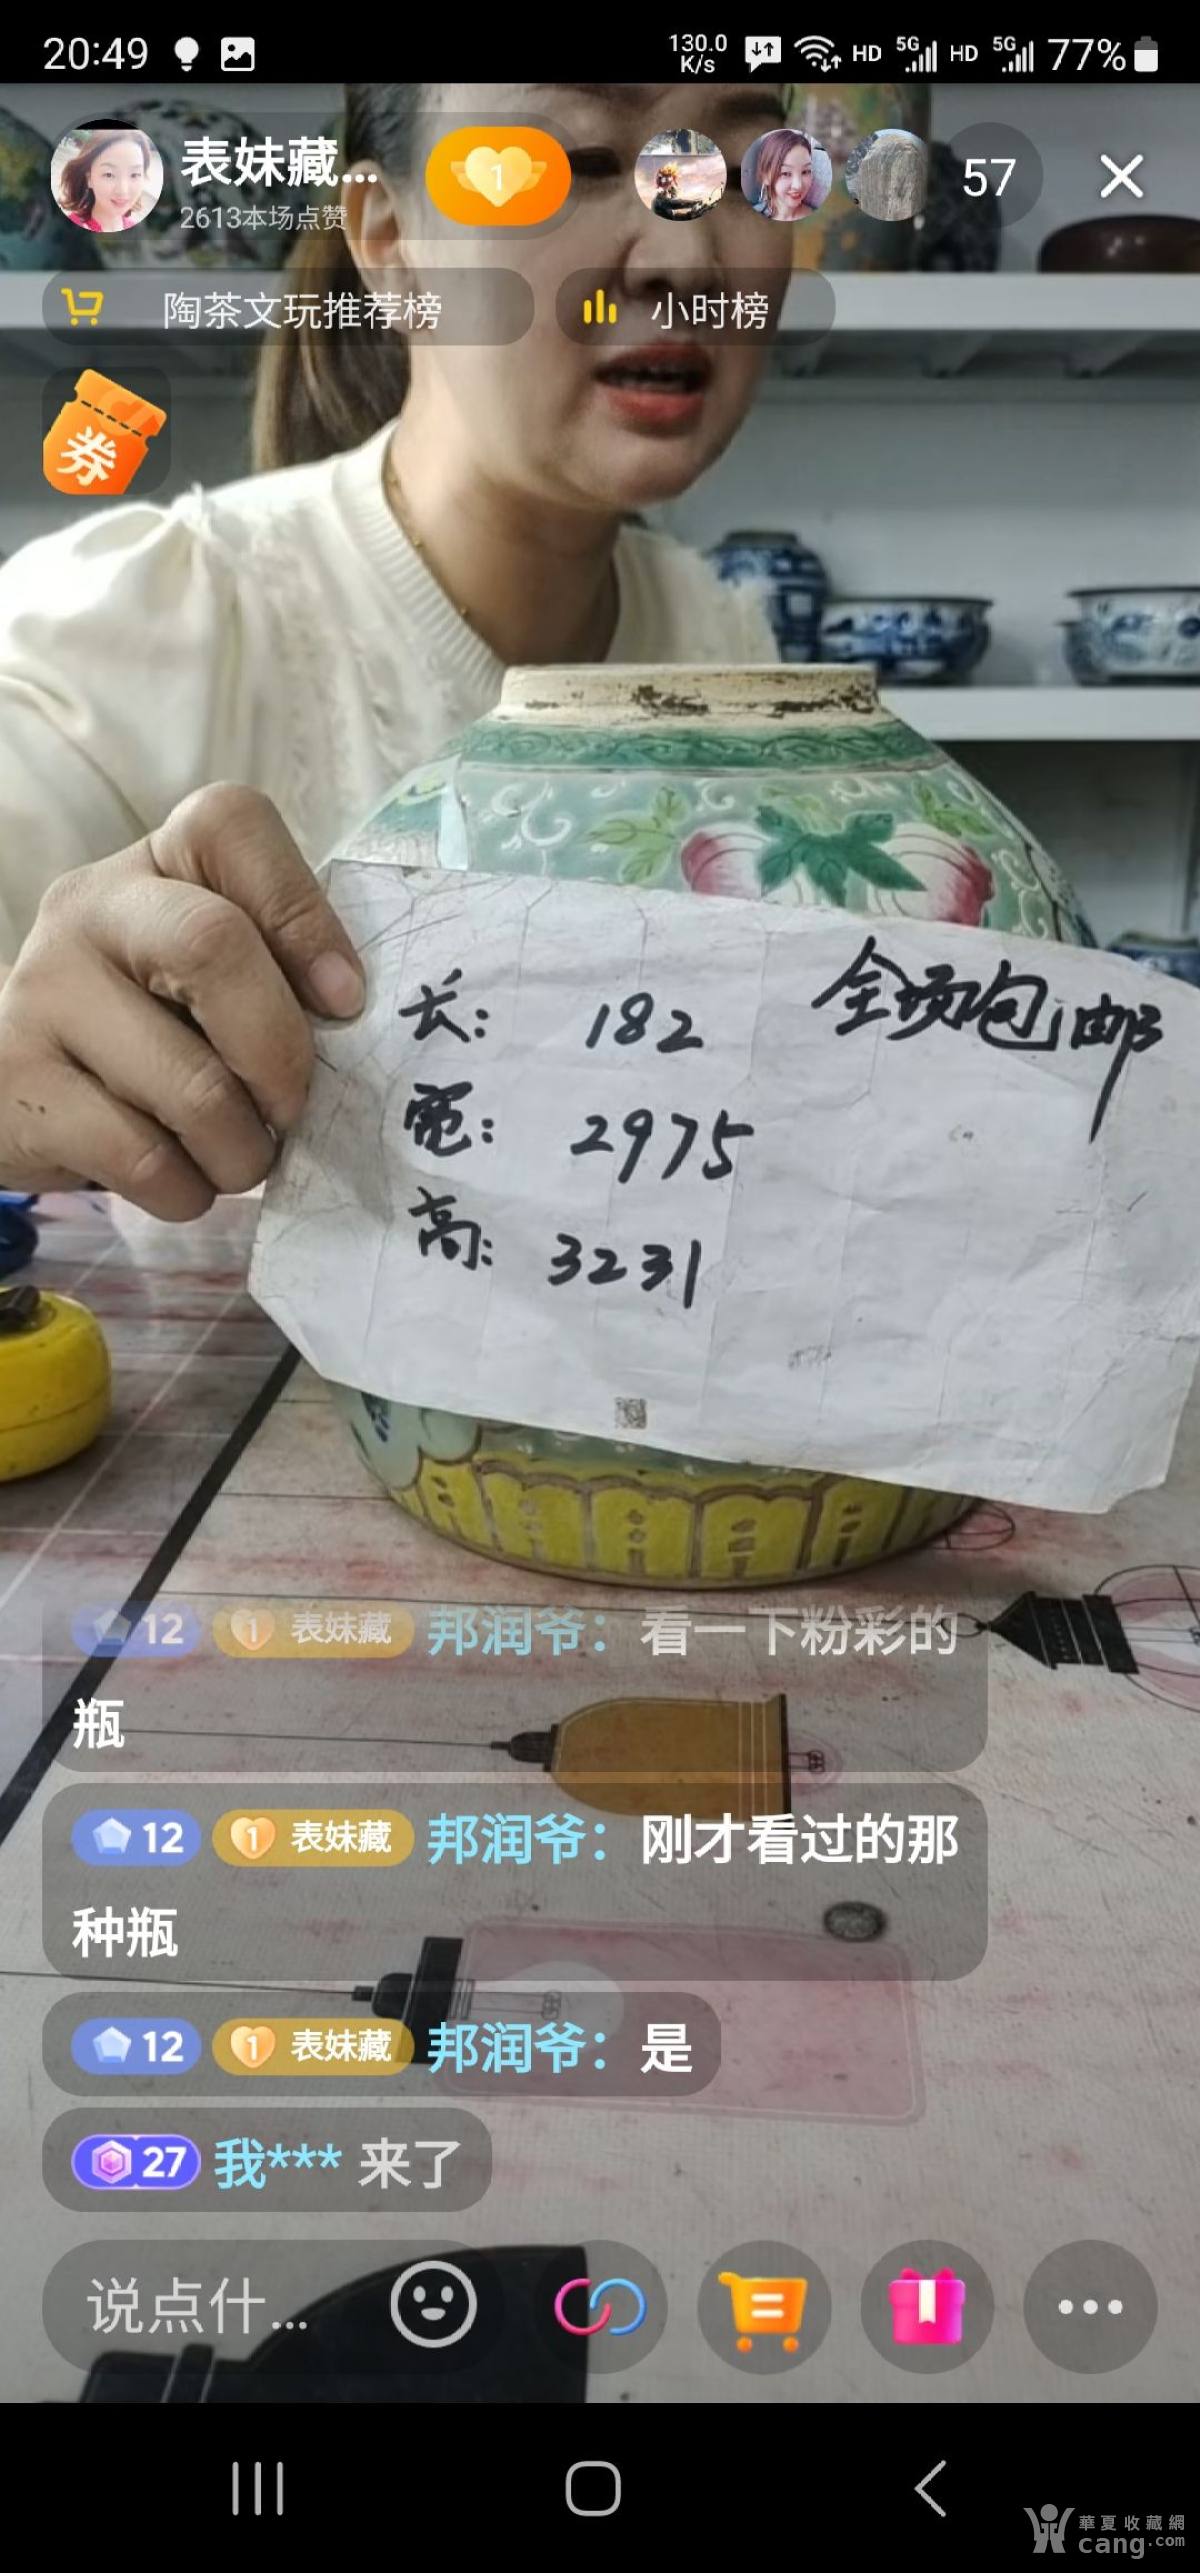 20:49
130.0
K/s
HD 5G HD 5G 77%
表妹藏...
2613本场点赞
1
57
陶茶文玩推荐榜
小时榜
券
长: 182 全场包邮
宽: 2975
高: 3231
12 1 表妹藏 邦润爷: 看一下粉彩的
瓶
12 1 表妹藏 邦润爷: 刚才看过的那
种瓶
12 1 表妹藏 邦润爷: 是
27 我*** 来了
说点什...
華夏收藏網
cang.com